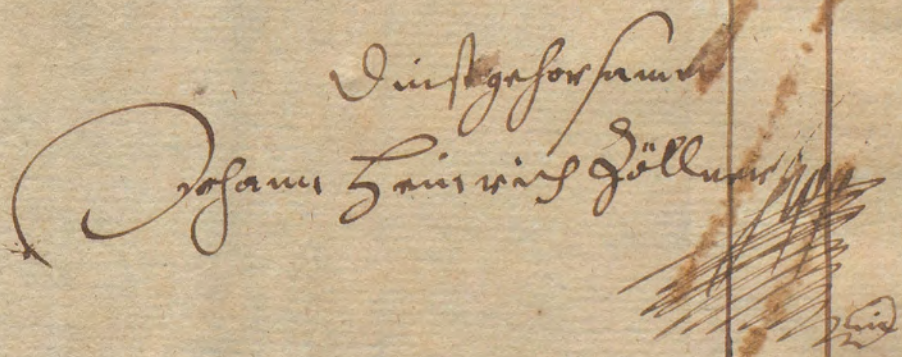 Dinstgehorsamer
Johann Heinrich Zöllner